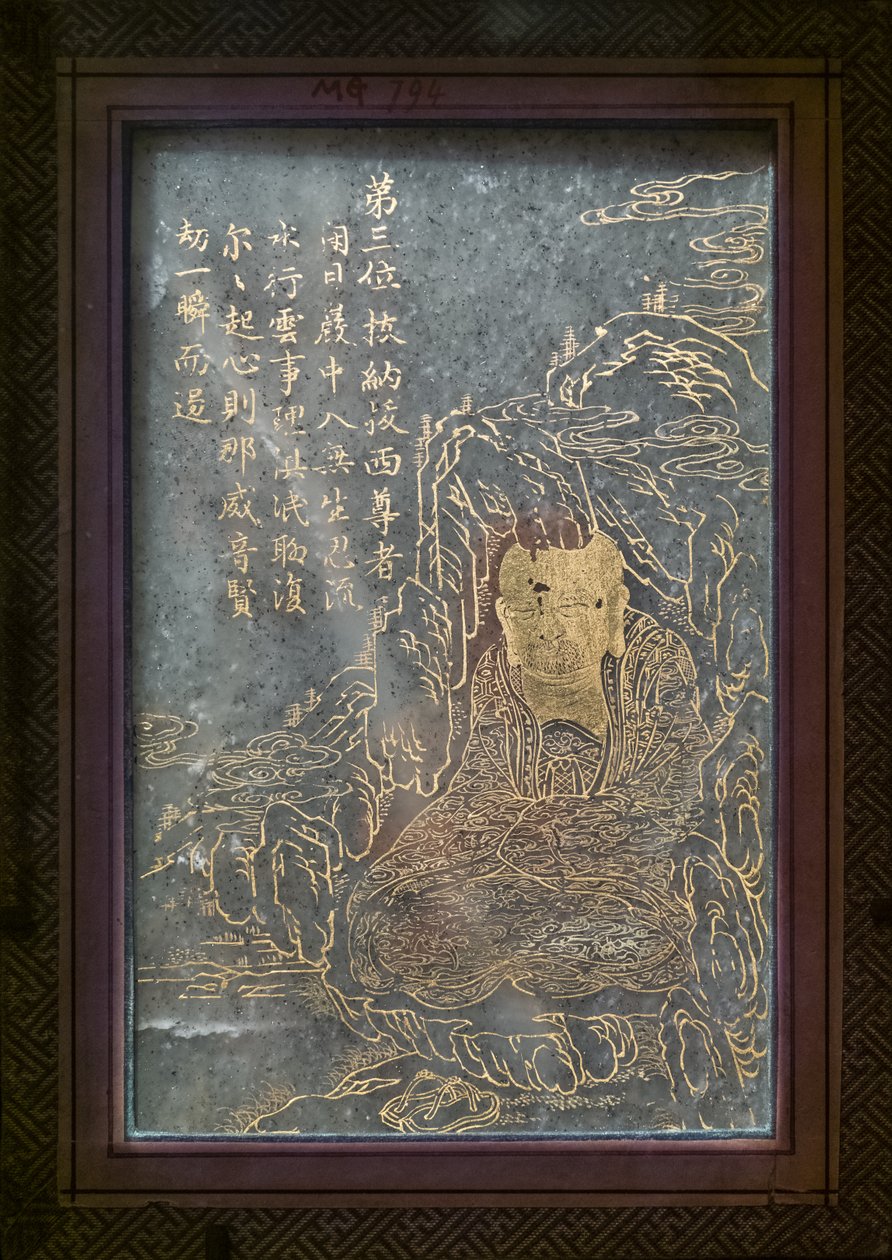 MG 794
第三位拔納拔西尊者
閉目巖中入無生忍流
水行雲事理俱泯聊復
尔〻起心則那威音賢
劫一瞬而過